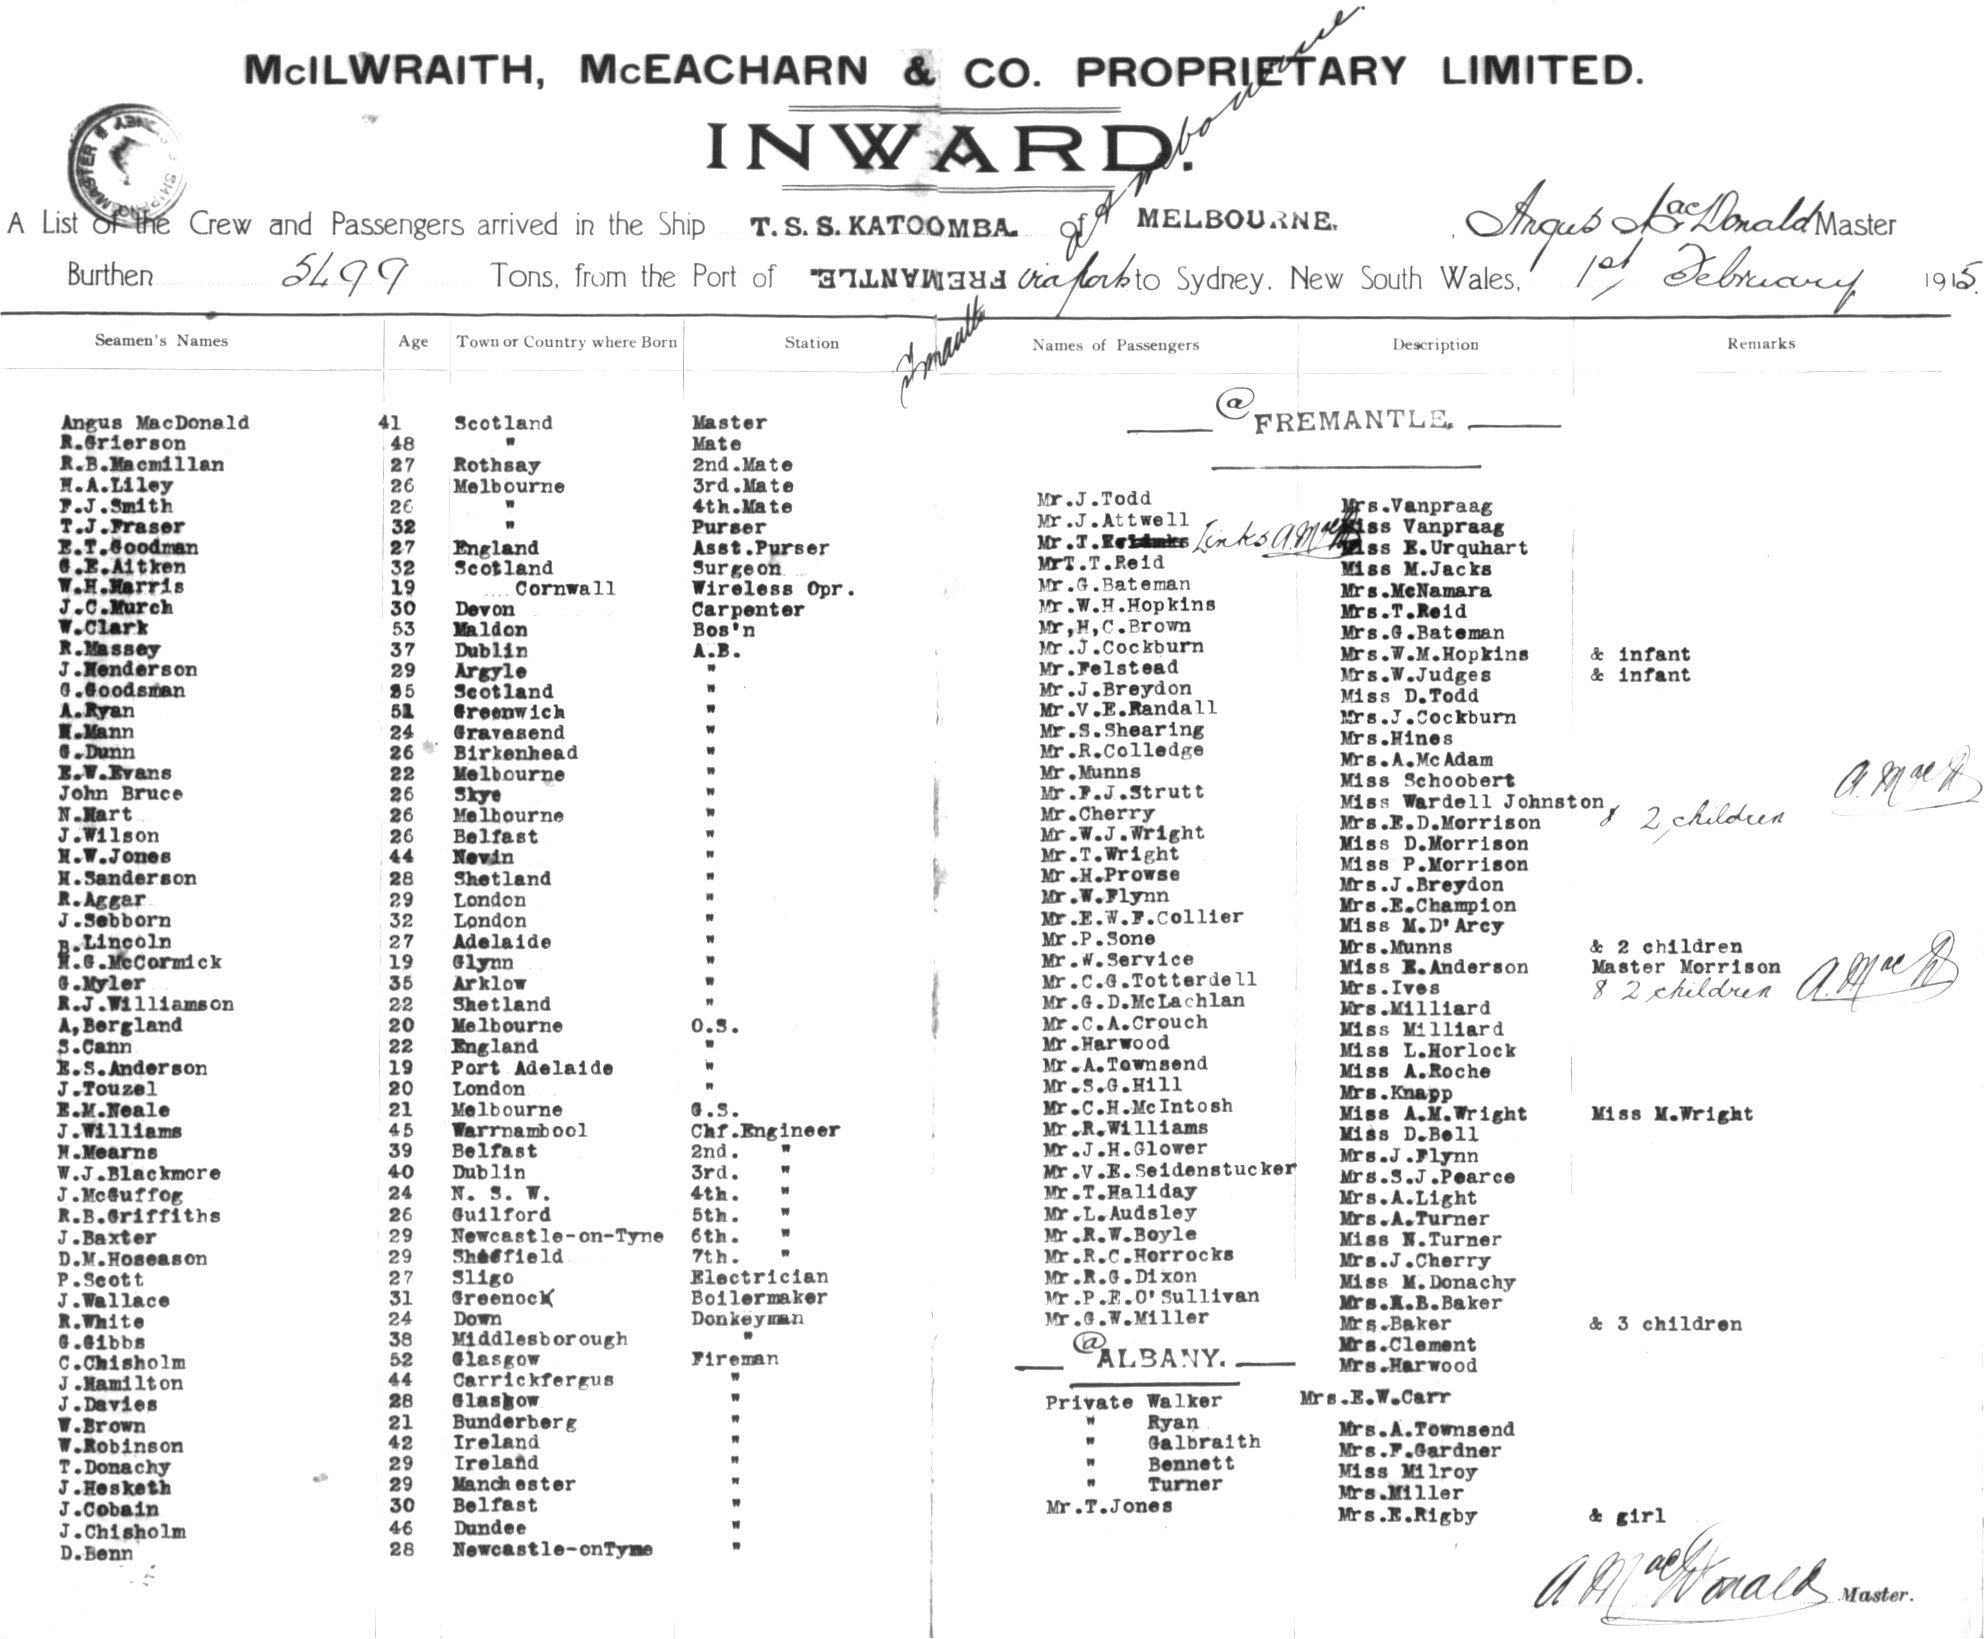 McILWRAITH, McEACHARN & CO. PROPRIETARY LIMITED.
INWARD.
A List of the Crew and Passengers arrived in the Ship T.S.S.KATOOMBA. of MELBOURNE. Angus MacDonald Master
Burthen 5499 Tons, from the Port of FREMANTLE. via ports to Sydney, New South Wales, 1st February 1915.
Seamen's Names Age Town or Country where Born Station Names of Passengers Description Remarks
Angus MacDonald 41 Scotland Master
R.Grierson 48 " Mate
R.B.Macmillan 27 Rothsay 2nd.Mate
H.A.Liley 26 Melbourne 3rd.Mate
F.J.Smith 26 " 4th.Mate
T.J.Fraser 32 " Purser
E.T.Goodman 27 England Asst.Purser
G.E.Aitken 32 Scotland Surgeon
W.H.Harris 19 Cornwall Wireless Opr.
J.C.Murch 30 Devon Carpenter
W.Clark 53 Maldon Bos'n
R.Massey 37 Dublin A.B.
J.Henderson 29 Argyle "
G.Goodsman 25 Scotland "
A.Ryan 51 Greenwich "
H.Mann 24 Gravesend "
G.Dunn 26 Birkenhead "
E.W.Evans 22 Melbourne "
John Bruce 26 Skye "
N.Hart 26 Melbourne "
J.Wilson 26 Belfast "
H.W.Jones 44 Nevin "
H.Sanderson 28 Shetland "
R.Aggar 29 London "
J.Sebborn 32 London "
B.Lincoln 27 Adelaide "
H.G.McCormick 19 Glynn "
G.Myler 35 Arklow "
R.J.Williamson 22 Shetland "
A,Bergland 20 Melbourne O.S.
S.Cann 22 England "
E.S.Anderson 19 Port Adelaide "
J.Touzel 20 London "
E.M.Neale 21 Melbourne G.S.
J.Williams 45 Warrnambool Chf.Engineer
H.Mearns 39 Belfast 2nd. "
W.J.Blackmore 40 Dublin 3rd. "
J.McGuffog 24 N. S. W. 4th. "
R.B.Griffiths 26 Guilford 5th. "
J.Baxter 29 Newcastle-on-Tyne 6th. "
D.M.Hoseason 29 Sheffield 7th. "
P.Scott 27 Sligo Electrician
J.Wallace 31 Greenock Boilermaker
R.White 24 Down Donkeyman
G.Gibbs 38 Middlesborough "
C.Chisholm 52 Glasgow Fireman
J.Hamilton 44 Carrickfergus "
J.Davies 28 Glasgow "
W.Brown 21 Bunderberg "
W.Robinson 42 Ireland "
T.Donachy 29 Ireland "
J.Hesketh 29 Manchester "
J.Cobain 30 Belfast "
J.Chisholm 46 Dundee "
D.Benn 28 Newcastle-onTyne "
@ FREMANTLE.
Mr.J.Todd
Mr.J.Attwell
Mr.T. Links A.MacD
MrT.T.Reid
Mr.G.Bateman
Mr.W.H.Hopkins
Mr,H,C.Brown
Mr.J.Cockburn
Mr.Felstead
Mr.J.Breydon
Mr.V.E.Randall
Mr.S.Shearing
Mr.R.Colledge
Mr.Munns
Mr.F.J.Strutt
Mr.Cherry
Mr.W.J.Wright
Mr.T.Wright
Mr.H.Prowse
Mr.W.Flynn
Mr.E.W.F.Collier
Mr.P.Sone
Mr.W.Service
Mr.C.G.Totterdell
Mr.G.D.McLachlan
Mr.C.A.Crouch
Mr.Harwood
Mr.A.Townsend
Mr.S.G.Hill
Mr.C.H.McIntosh
Mr.R.Williams
Mr.J.H.Glower
Mr.V.E.Seidenstucker
Mr.T.Haliday
Mr.L.Audsley
Mr.R.W.Boyle
Mr.R.C.Horrocks
Mr.R.G.Dixon
Mr.P.E.O'Sullivan
Mr.G.W.Miller
@ ALBANY.
Private Walker
" Ryan
" Galbraith
" Bennett
" Turner
Mr.T.Jones
Mrs.Vanpraag
Miss Vanpraag
Miss E.Urquhart
Miss M.Jacks
Mrs.McNamara
Mrs.T.Reid
Mrs.G.Bateman
Mrs.W.M.Hopkins & infant
Mrs.W.Judges & infant
Miss D.Todd
Mrs.J.Cockburn
Mrs.Hines
Mrs.A.McAdam
Miss Schoobert
Miss Wardell Johnston
Mrs.E.D.Morrison & 2 children A.MacD
Miss D.Morrison
Miss P.Morrison
Mrs.J.Breydon
Mrs.E.Champion
Miss M.D'Arcy
Mrs.Munns & 2 children
Miss E.Anderson Master Morrison
Mrs.Ives & 2 children A.MacD
Mrs.Milliard
Miss Milliard
Miss L.Horlock
Miss A.Roche
Mrs.Knapp
Miss A.M.Wright Miss M.Wright
Miss D.Bell
Mrs.J.Flynn
Mrs.S.J.Pearce
Mrs.A.Light
Mrs.A.Turner
Miss N.Turner
Mrs.J.Cherry
Miss M.Donachy
Mrs.R.B.Baker
Mrs.Baker & 3 children
Mrs.Clement
Mrs.Harwood
Mrs.E.W.Carr
Mrs.A.Townsend
Mrs.F.Gardner
Miss Milroy
Mrs.Miller
Mrs.E.Rigby & girl
A MacDonald Master.